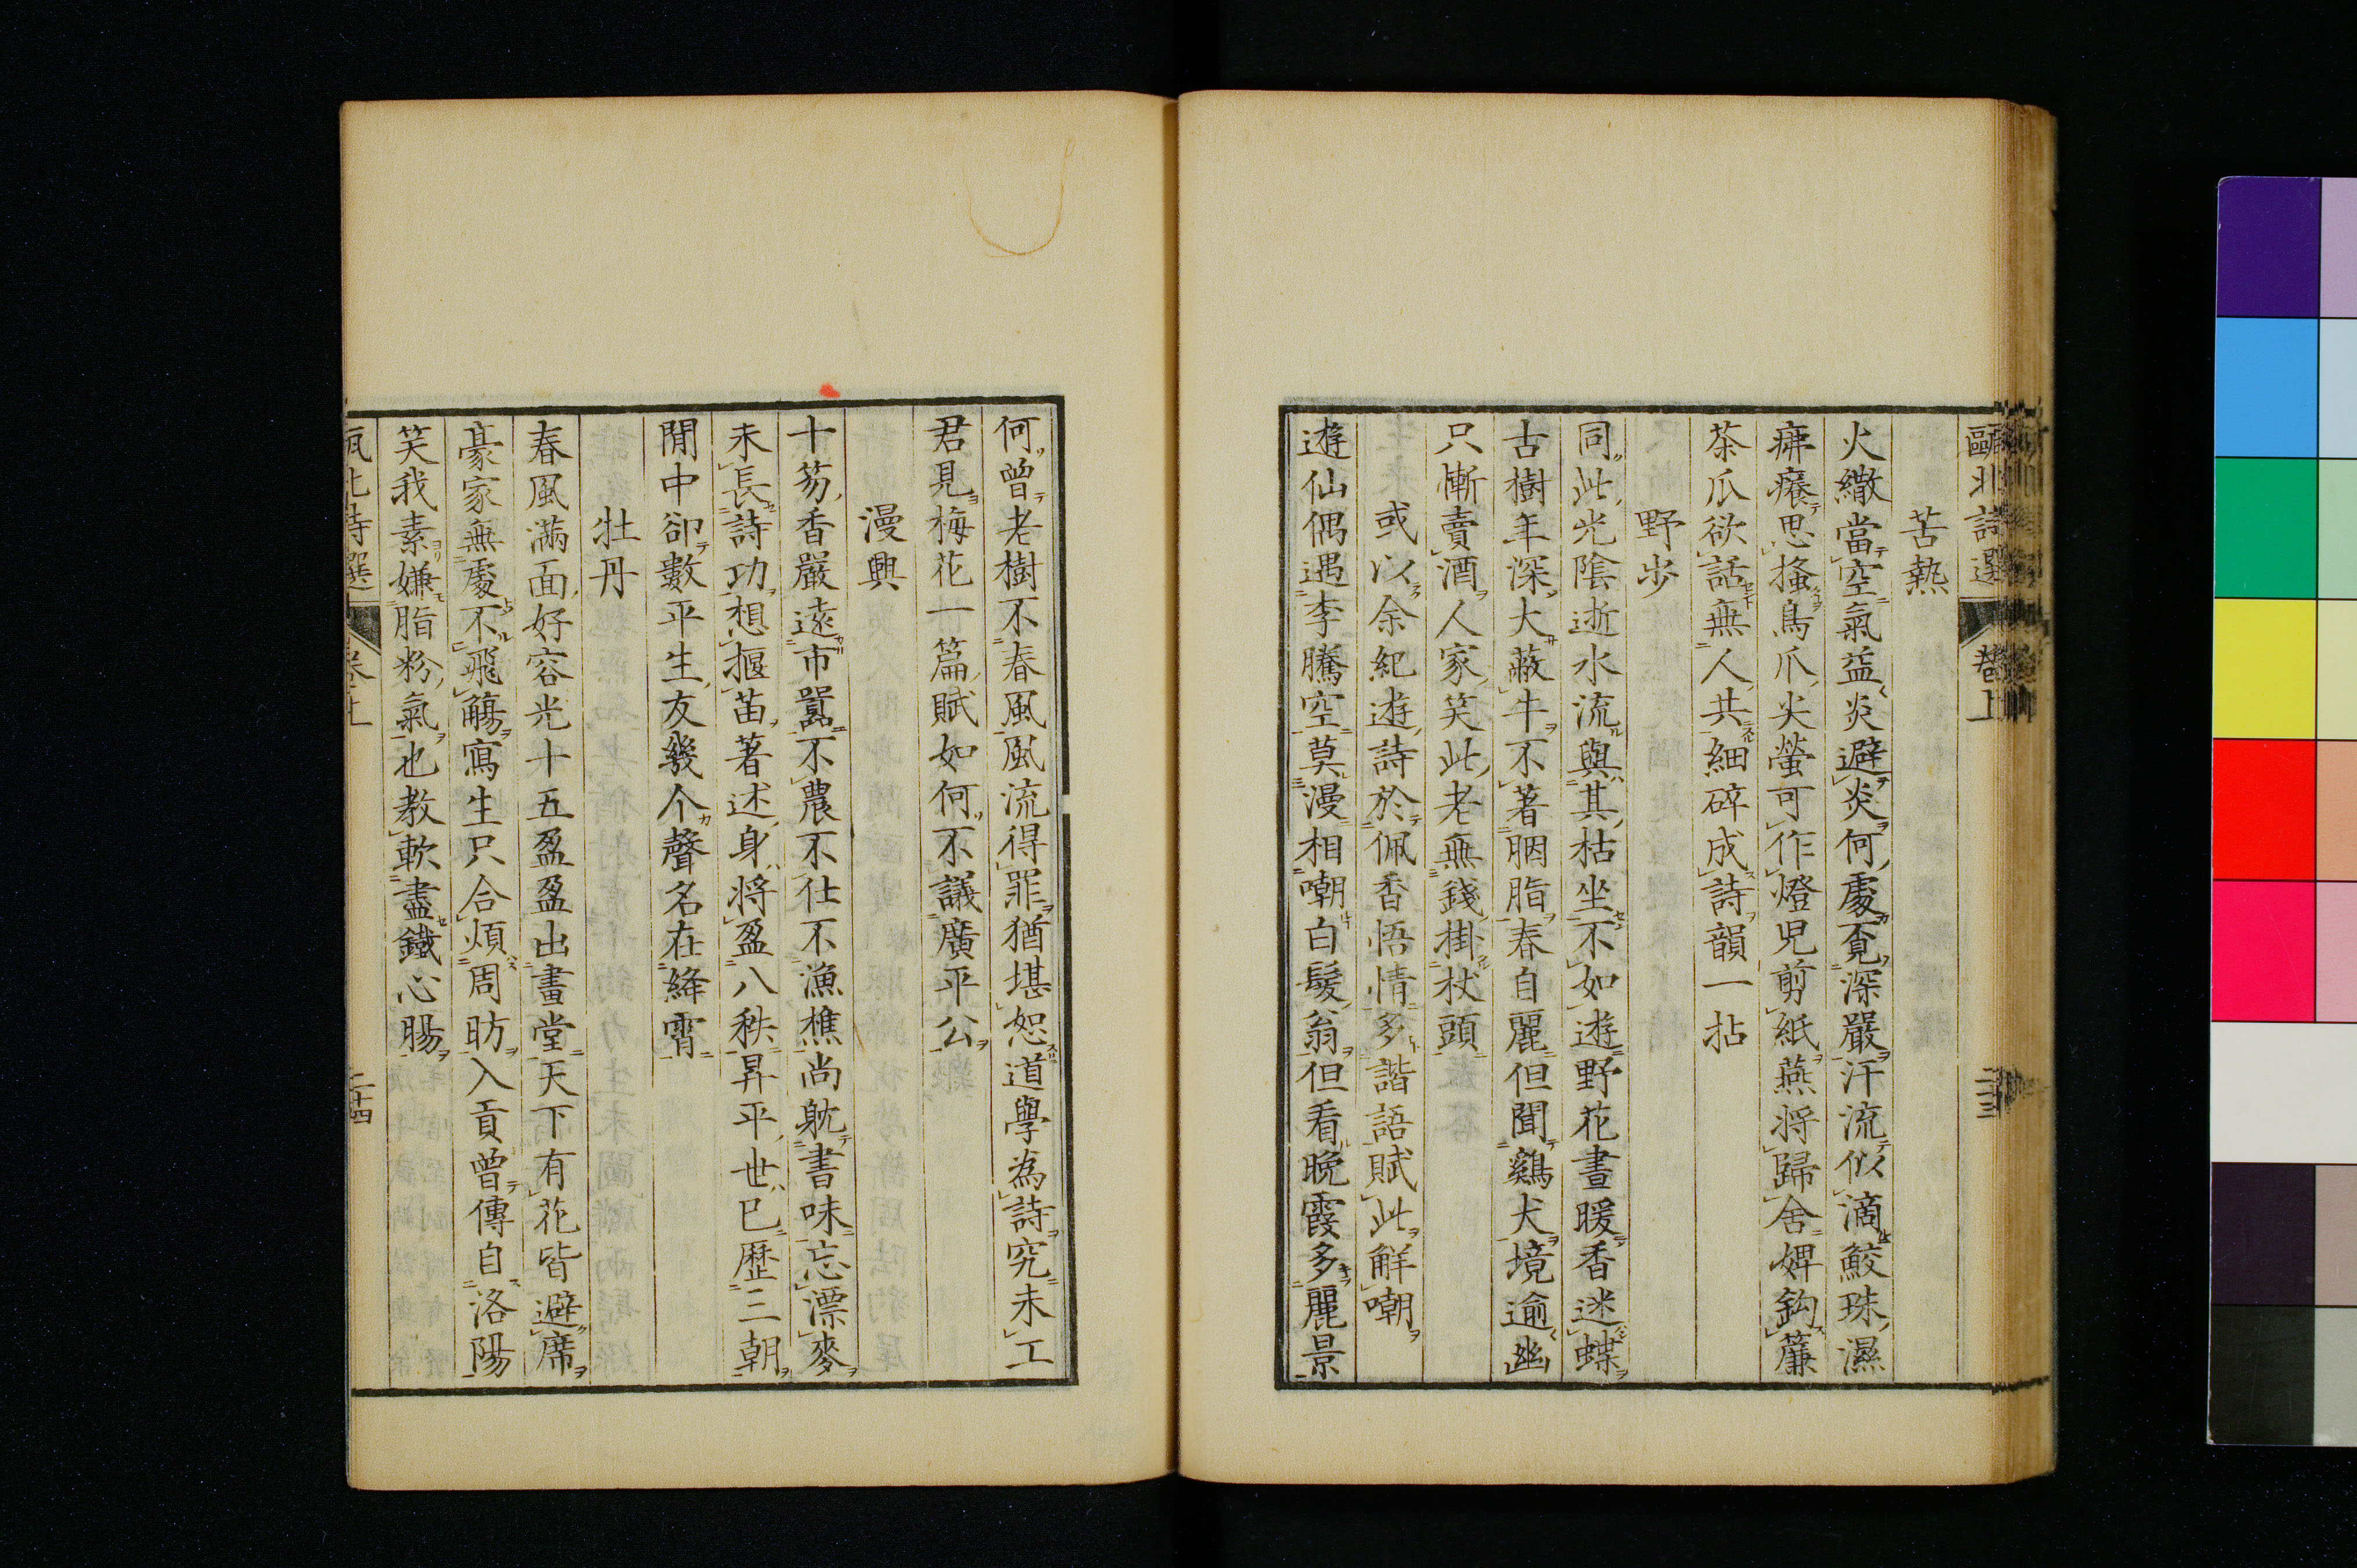 甌北詩選 卷上 二十三
苦熱
火繖當空氣益炎避炎何處覓深嚴汗流似滴鮫珠濕
痱癢思搔鳥爪尖螢可作燈兒剪紙燕將歸舍婢鈎簾
茶瓜欲話無人共細碎成詩韻一拈
野步
同此光陰逝水流與其枯坐不如遊野花晝暖香迷蝶
古樹年深大蔽牛不著胭脂春自麗但聞鷄犬境逾幽
只慚賣酒人家笑此老無錢掛杖頭
或以余紀遊詩於佩香悟情多諧語賦此解嘲
遊仙偶遇李騰空莫漫相嘲白髮翁但看晩霞多麗景
何曾老樹不春風風流得罪猶堪恕道學為詩究未工
君見梅花一篇賦如何不議廣平公
漫興
十笏香嚴遠市囂不農不仕不漁樵尚躭書味忘漂麥
未長詩功想揠苗著述身將盈八秩昇平世已歷三朝
閒中卻數平生友幾个聲名在絳霄
牡丹
春風滿面好容光十五盈盈出畫堂天下有花皆避席
豪家無處不飛觴寫生只合煩周昉入貢曾傳自洛陽
笑我素嫌脂粉氣也教軟盡鐵心腸
甌北詩選 卷上 二十四